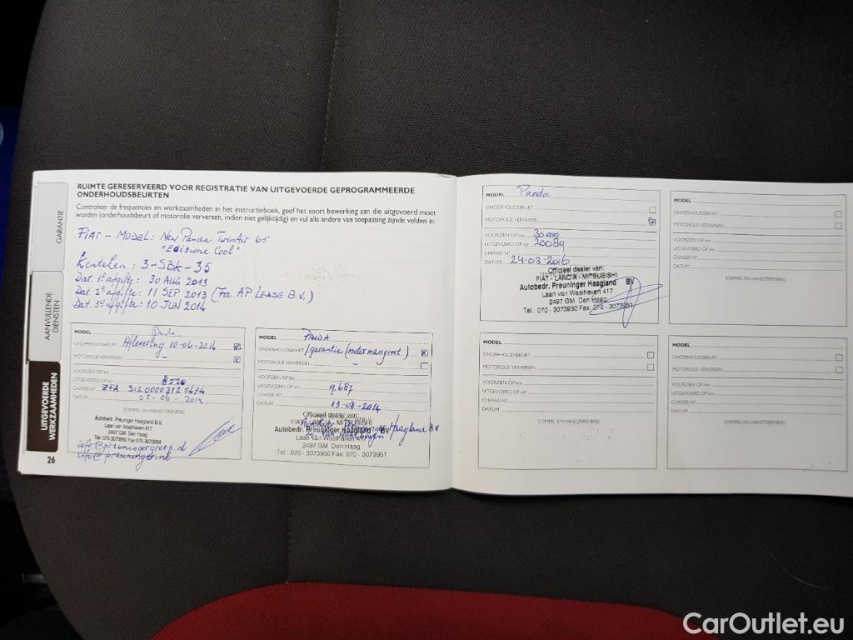 RUIMTE GERESERVEERD VOOR REGISTRATIE VAN UITGEVOERDE GEPROGRAMMEERDE
ONDERHOUDSBEURTEN
Controleer de frequenties en werkzaamheden in het instructieboek, geef het soort bewerking aan die uitgevoerd moet
worden (onderhoudsbeurt of motorolie verversen, indien niet gelijktijdig) en vul alle andere van toepassing zijnde velden in.
GARANTIE
AANVULLENDE
DIENSTEN
UITGEVOERDE
WERKZAAMHEDEN
26
FIAT - MODEL: New Panda TwinAir 65
"Edizione Cool"
Kenteken: 3-SBK-35
Dat. 1e afgifte: 30 AUG 2013
Dat 2e afgifte: 11 SEP 2013 (Fa. AP LEASE B.V.)
Dat 3e afgifte: 10 JUN 2014
MODEL Panda
ONDERHOUDSBEURT Aflevering 10-06-2014
MOTOROLIE VERVERSEN
VOORZIEN OP km
UITGEVOERD OP km
CHASSIS Nr. ZFA 312 0000
DATUM
STEMPEL EN HANDTEKENING
Autobedr. Preuninger Haagland B.V.
Laan van Waalhaven 417
2497 GM Den Haag
MODEL PANDA
ONDERHOUDSBEURT /garantie (motormanagement)
MOTOROLIE VERVERSEN
VOORZIEN OP km
UITGEVOERD OP km 9.687
CHASSIS Nr.
DATUM 19-08-2014
Officieel dealer van:
Autobedr. Preuninger Haagland BV
Laan van Waalhaven
2497 GM Den Haag
Tel.: 070 - 3073950 Fax: 070 - 3073951
MODEL Panda
ONDERHOUDSBEURT
MOTOROLIE VERVERSEN
VOORZIEN OP km 30.000
UITGEVOERD OP km 20089
CHASSIS Nr.
DATUM 24-03-2016
Officieel dealer van:
FIAT - LANCIA - MITSUBISHI
Autobedr. Preuninger Haagland BV
Laan van Waalhaven 417
2497 GM Den Haag
Tel. 070 - 3073950 Fax 070 - 3073951
MODEL
ONDERHOUDSBEURT
MOTOROLIE VERVERSEN
VOORZIEN OP km
UITGEVOERD OP km
CHASSIS Nr.
DATUM
STEMPEL EN HANDTEKENING
MODEL
ONDERHOUDSBEURT
MOTOROLIE VERVERSEN
VOORZIEN OP km
UITGEVOERD OP km
CHASSIS Nr.
DATUM
STEMPEL EN HANDTEKENING
MODEL
ONDERHOUDSBEURT
MOTOROLIE VERVERSEN
VOORZIEN OP km
UITGEVOERD OP km
CHASSIS Nr.
DATUM
STEMPEL EN HANDTEKENING
CarOutlet.eu